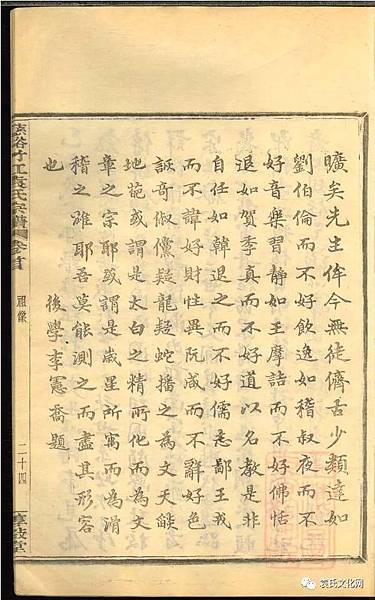 曠矣先生侔今無徒儕古少類達如
劉伯倫而不好飲逸如稽叔夜而不
好音樂習靜如王摩詰而不好佛恬
退如賀季真而不好道以名教是非
自任如韓退之而不好儒鄙王戎
而不諱好財性異阮咸而不辭好色
詼奇俶儻疑龍疑蛇播之為文天
地葩或謂是太白之精所化而為文
章之宗耶或謂是歲星所寓而為滑
稽之雄耶吾莫能測之而盡其形容
也　後學李憲喬題
竹江袁氏宗譜卷首
祖像
二十四
袁氏文化网